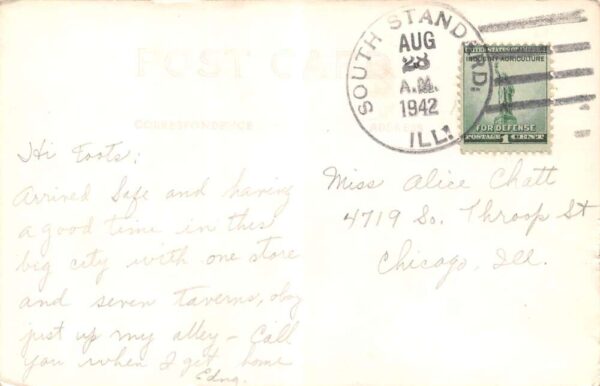 POST CARD
CORRESPONDENCE
SOUTH STANDARD
AUG
28
A.M.
1942
ILL.
UNITED STATES OF AMERICA
INDUSTRY AGRICULTURE
FOR DEFENSE
POSTAGE 1 CENT
Hi Toots;
Arrived Safe and having
a good time in this
big city with one store
and seven taverns, oboy
just up my alley - Call
you when I get home
Edna.
Miss Alice Chatt
4719 So. Throop St
Chicago, Ill.